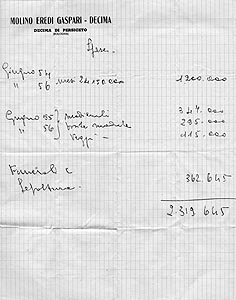 MOLINO EREDI GASPARI - DECIMA
DECIMA DI PERSICETO
(BOLOGNA)
Spese
Giugno 54
" 56 mesi 24 x 50.000 1200.000
Giugno 55 medicinali 347.000
" 56 295.000
115.000
Funerali e 362.645
Sepoltura
2.319.645